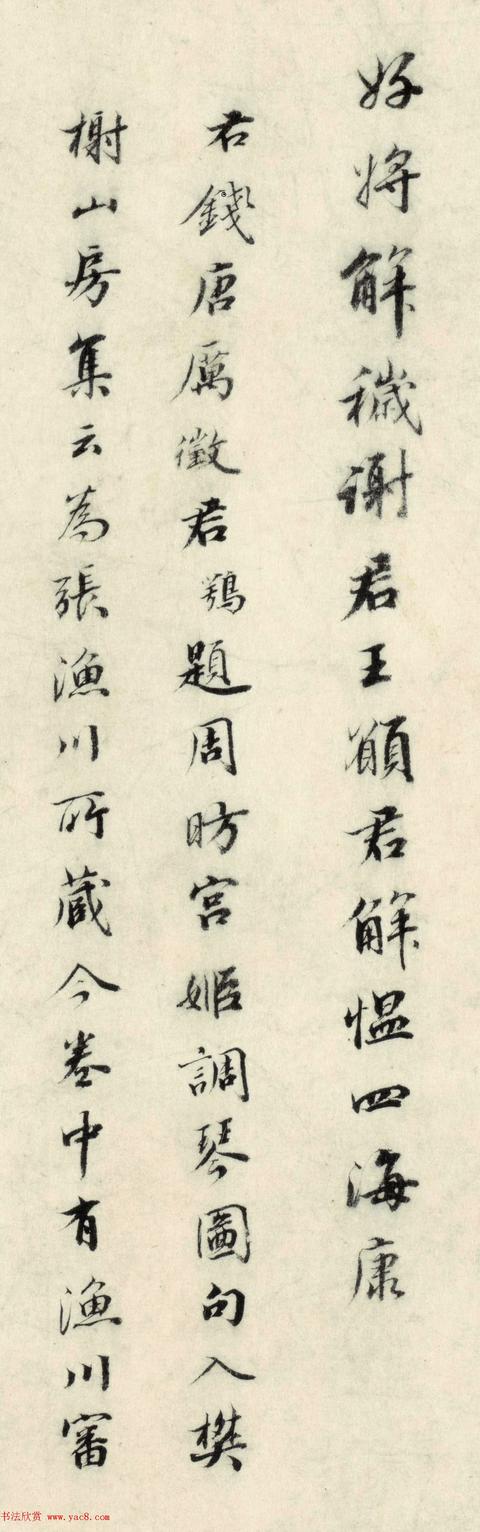 好將解穢謝君王願君解愠四海康
右錢唐厲徵君鶚題周昉宮姬調琴圖句入樊
榭山房集云為張漁川所藏今卷中有漁川審
书法欣赏 www.yac8.com